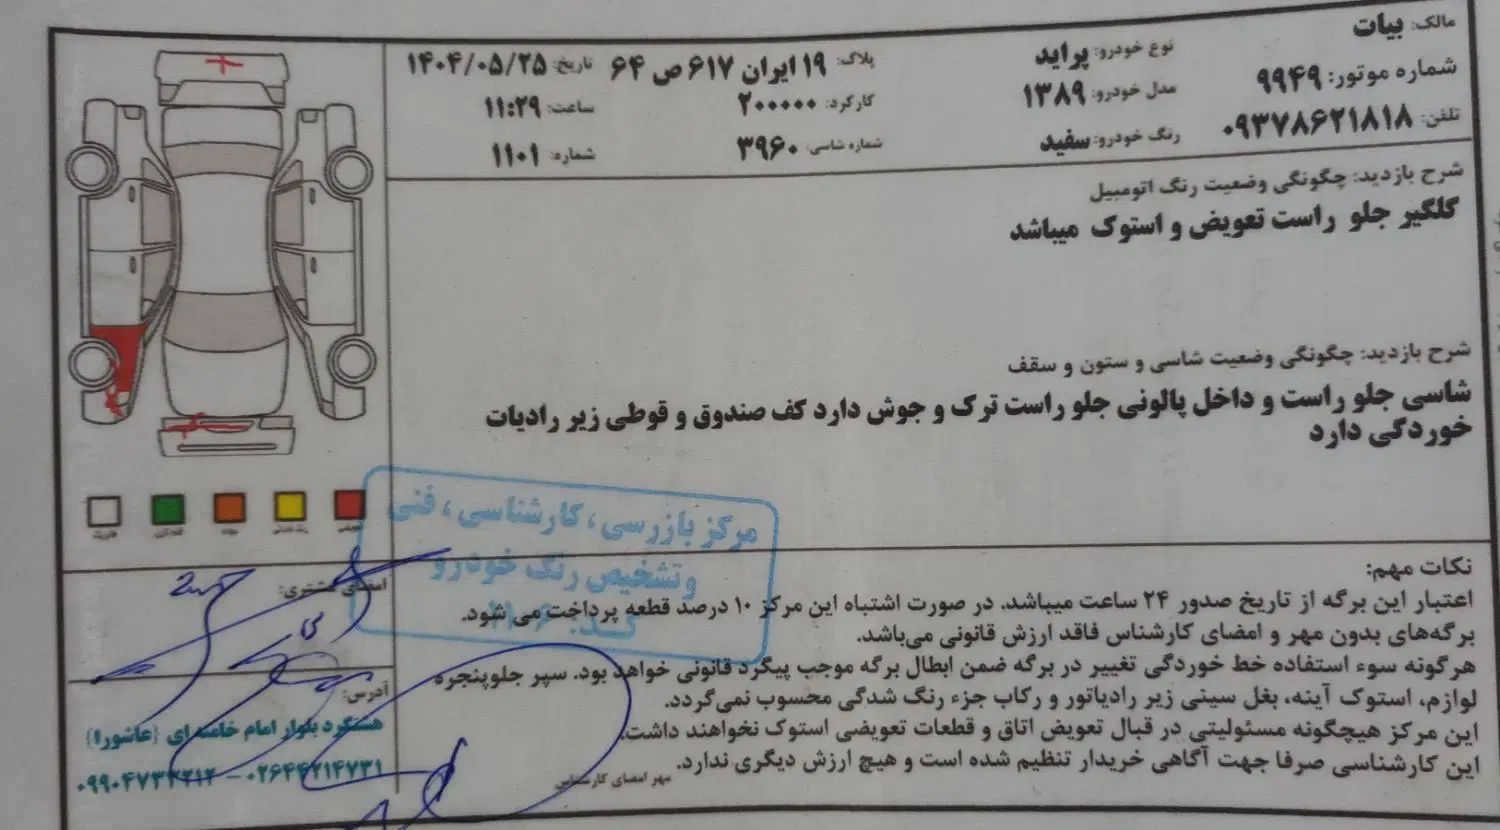 مالک: بیات
نوع خودرو: پراید
پلاک: ۱۹ ایران ۶۱۷ ص ۶۴
تاریخ: ۱۴۰۴/۰۵/۲۵
شماره موتور: ۹۹۴۹
مدل خودرو: ۱۳۸۹
کارکرد: ۲۰۰۰۰۰
ساعت: ۱۱:۲۹
تلفن: ۰۹۳۷۸۶۲۱۸۱۸
رنگ خودرو: سفید
شماره شاسی: ۳۹۶۰
شماره: ۱۱۰۱
شرح بازدید: چگونگی وضعیت رنگ اتومبیل
گلگیر جلو راست تعویض و استوک میباشد
شرح بازدید: چگونگی وضعیت شاسی و ستون و سقف
شاسی جلو راست و داخل پالونی جلو راست ترک و جوش دارد کف صندوق و قوطی زیر رادیات
خوردگی دارد
مرکز بازرسی، کارشناسی، فنی
وتشخیص رنگ خودرو
نکات مهم:
اعتبار این برگه از تاریخ صدور ۲۴ ساعت میباشد. در صورت اشتباه این مرکز ۱۰ درصد قطعه پرداخت می شود.
برگه‌های بدون مهر و امضای کارشناس فاقد ارزش قانونی می‌باشد.
هرگونه سوء استفاده خط خوردگی تغییر در برگه ضمن ابطال برگه موجب پیگرد قانونی خواهد بود. سپر جلوپنجره
لوازم، استوک آینه، بغل سینی زیر رادیاتور و رکاب جزء رنگ شدگی محسوب نمی‌گردد.
این مرکز هیچگونه مسئولیتی در قبال تعویض اتاق و قطعات تعویضی استوک نخواهند داشت.
این کارشناسی صرفا جهت آگاهی خریدار تنظیم شده است و هیچ ارزش دیگری ندارد.
مهر امضای کارشناس
امضای مشتری:
آدرس:
هشتگرد بلوار امام خامنه ای (عاشورا)
۰۲۶۴۴۲۱۴۷۳۱ -